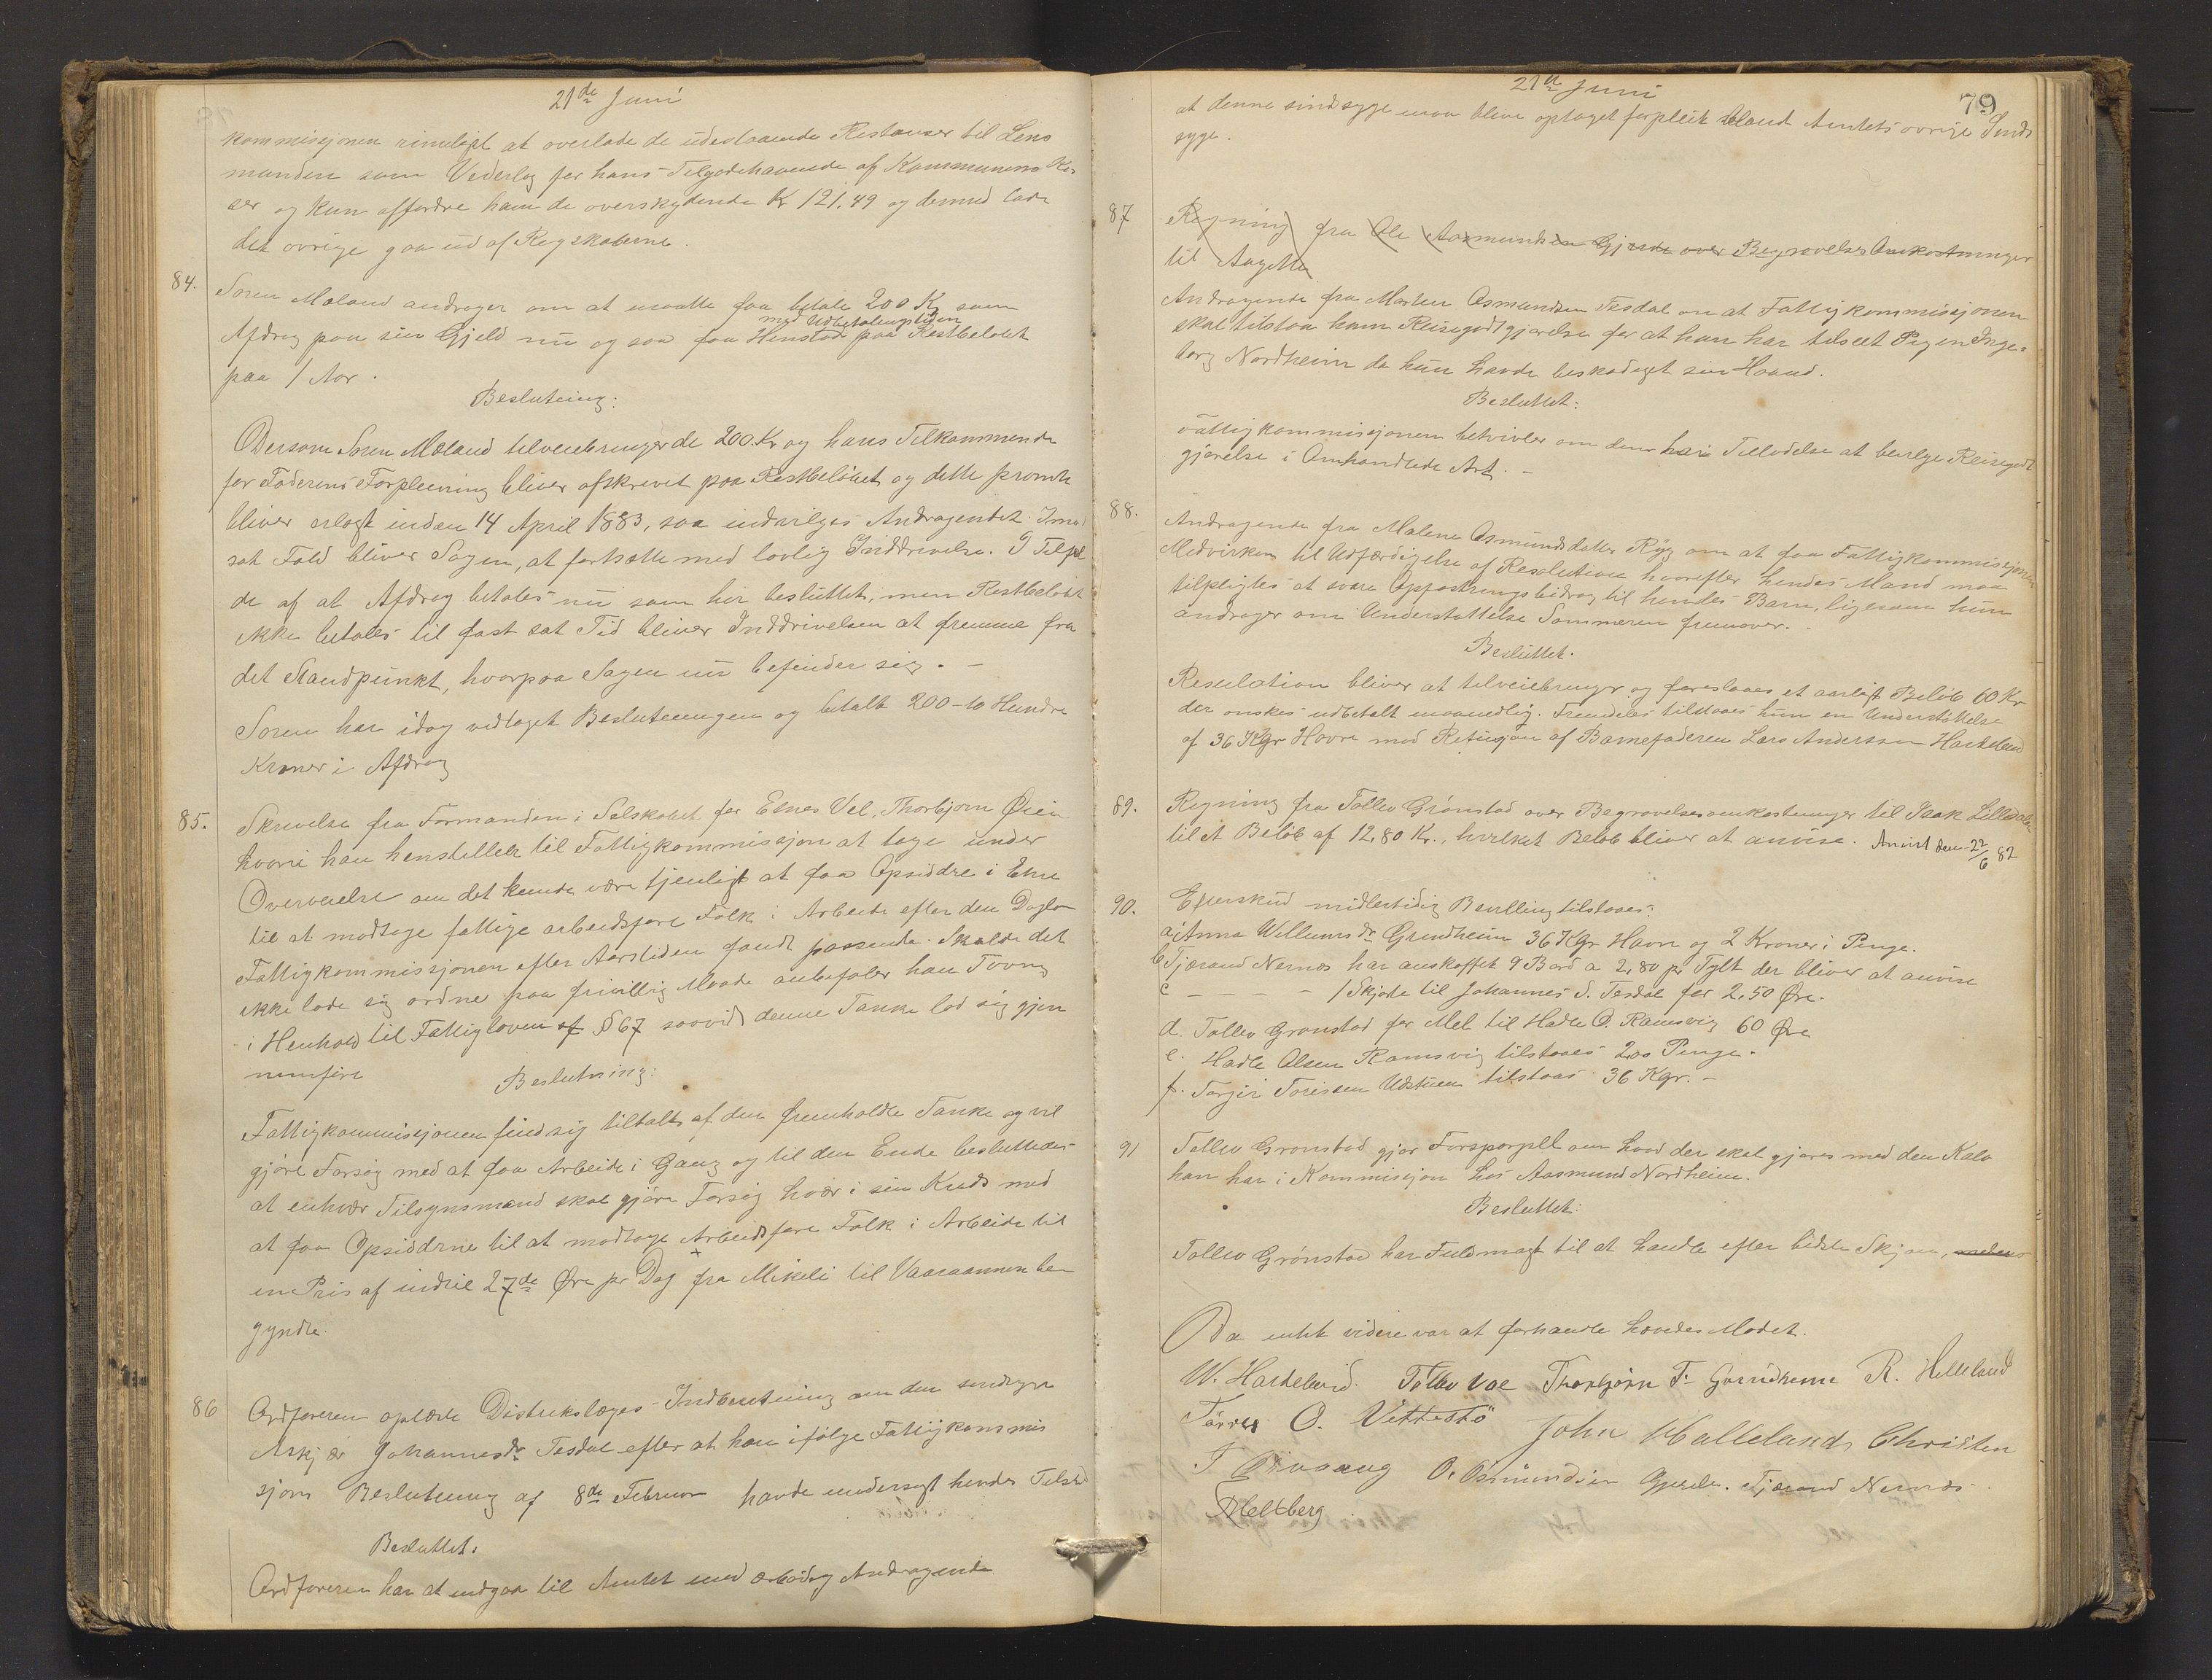 21de Juni
kommisjonen rimeligt at overlade de udestaaende Restanser til Lens
manden som Vederlag for hans Tilgodehavende af Kommunens Kas
ser og kun affordre ham de overskydende Kr 121,49 og dermed lade
det øvrige gaa ud af Regskaberne.
84. Søren Mæland andrager om at maatte faa betale 200 Kr som
med Udbetalingstiden
Afdrag paa sin Gjeld nu og saa faa Henstad paa Restbeløbet
paa 1 Aar.
Beslutning:
Dersom Søren Mæland tilveiebringer de 200 Kr og hans Tilkommende
for Faderens Forpleining bliver afskrevet paa Restbeløbet og dette promte
bliver erlagt inden 14 April 1883, saa indvilges Andragendet. Imod
sat Fald bliver Sagen, at fortsætte med lovlig Inddrivelse. I Tilfæl
de af at Afdrag betales nu som her besluttet, men Restbeløbet
ikke betales til fast sat Tid bliver Inddrivelsen at fremme fra
det Standpunkt, hvorpaa Sagen nu befinder sig. –
Søren har idag vedtaget Beslutningen og betalt 200 – to Hundre
Kroner i Afdrag
85. Skrivelse fra Formanden i Selskabet for Etnes Vel, Thorbjørn Øien
hvori han henstiller til Fattigkommissjon at tage under
Overveielse om det kunde være tjenligt at faa Opsiddre i Etne
til at modtage fattige arbeidsføre Folk i Arbeide efter den Dagløn
Fattigkommissjonen efter Aarstiden fandt passende. Skulde det
ikke lade sig ordne paa frivillig Maade anbefaler han Tvang
i Henhold til Fattigloven af § 67 saavidt denne Tanke lod sig gjen
nemføre
Beslutning:
Fattigkommissjonen find sig tiltalt af den fremholdte Tanke og vil
gjøre Forsøg med at faa Arbeide i Gang og til den Ende besluttedes
at enhvær Tilsynsmand skal gjøre Forsøg hvær i sin Kreds med
at faa Opsiddrne til at modtage Arbeidsføre Folk i Arbeide til
en Pris af indtil 27de Øre pr Dag + fra Mikeli til Vaaraannen be
gyndte.
86 Ordføreren oplæste Distrikslæges Indberetning om den sindsyge
Johannesdr Tesdal efter at han ifølge Fattigkommis
sjons Beslutning af 8de Februar havde undersøgt hendes Tilstd
Besluttet.
Ordføreren har at indgaa til Amtet med ærbødig Andragende
21de Juni
79
at denne sindsyge maa blive optaget forpleiet bland Amtets øvrige Sinds
syge.
87 Regning fra Ole Aasmundsen Gjerde over Begravelses Omkostninger
til Aagotta
Andragende fra Morten Osmundsen Tesdal om at Fattigkommisjonen
skal tilstaa ham Reisegodtgjørelse for at han har tilseet Pigen Inge-
borg Nordheim da hun havde beskadiget sin Haand.
Besluttet:
Fattigkommissjonen betvivler om den har Tilladelse at bevilge Reisegodt
gjørelse i Omhandlede Art. –
88. Andragende fra Malene Osmundsdatter Ryg om at faa Fattigkommisjonen
Medvirken til Udfærdigelse af Resolution hvorefter hendes Mand maa
tilpligtes at svare Oppostringsbidrag til hendes Barn, ligesom hun
andrager om Understøttelse Sommeren fremover.
Besluttet.
Resulation bliver at tilveiebringe og foreslaaes et aarligt Beløb 60 Kr
der ønskes udbetalt maanedlig. Fremdeles tilstaaes hun en Understøttelse
af 36 Kgr Havre mod Refusjon af Barnefaderen Lars Anderssen Haukeland
89. Regning fra Tollev Grønstad over Begravelsesomkostninger til Isak Lilledalen
til et Beløb af 12,80 Kr., hvilket Beløb bliver at anvise. Anvist den 22/6 82
90. Efterskud midlertidig Bevilling tilstaaes:
a. Anna Willumsdr Grindheim 36 Kgr Havre og 2 Kroner i Penge.
b. Tjærand Nernes har anskaffet 9 Bord a 2,80 pr Tylt der bliver at anvise
c – – – – 1 Skjorte til Johannes S. Tesdal for 2,50 Øre.
d. Tollev Grønstad for Mel til Hadle O. Ramsvig 60 Øre
e. Hadle Olsen Ramsvig tilstaaes 2,00 Penge.
f. Torgir Torissen Udstuen tilstaaes 36 Kgr. –
91 Tollev Grønstad gjør Forspørgsel om hvad der skal gjøres med den Kalv
han har i Kommisjon hos Aasmund Nordheim.
Besluttet:
Tollev Grønstad har Fuldmagt til at handle efter bedste Skjøn,
Da intet videre var at forhandle hævedes Mødet.
W. Haukeland. Tollev Voe Thorbjørn T. Grindheim R. Helleland
Tørres O. Vettestö John Halleland Christen
O. Osmundsen Gjerde. Tjærand Nernes.
Meltberg.